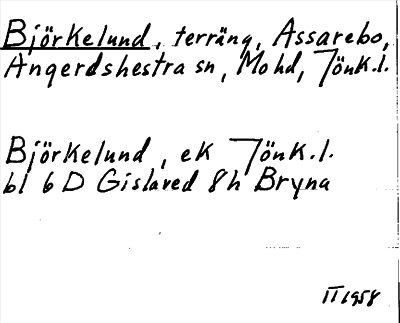 Björkelund, terräng, Assarebo,
Angerdshestra sn, Mohd, Jönk.l.
Björkelund, ek Jönk.l.
bl 6 D Gislaved 8h Bryna
II 1958